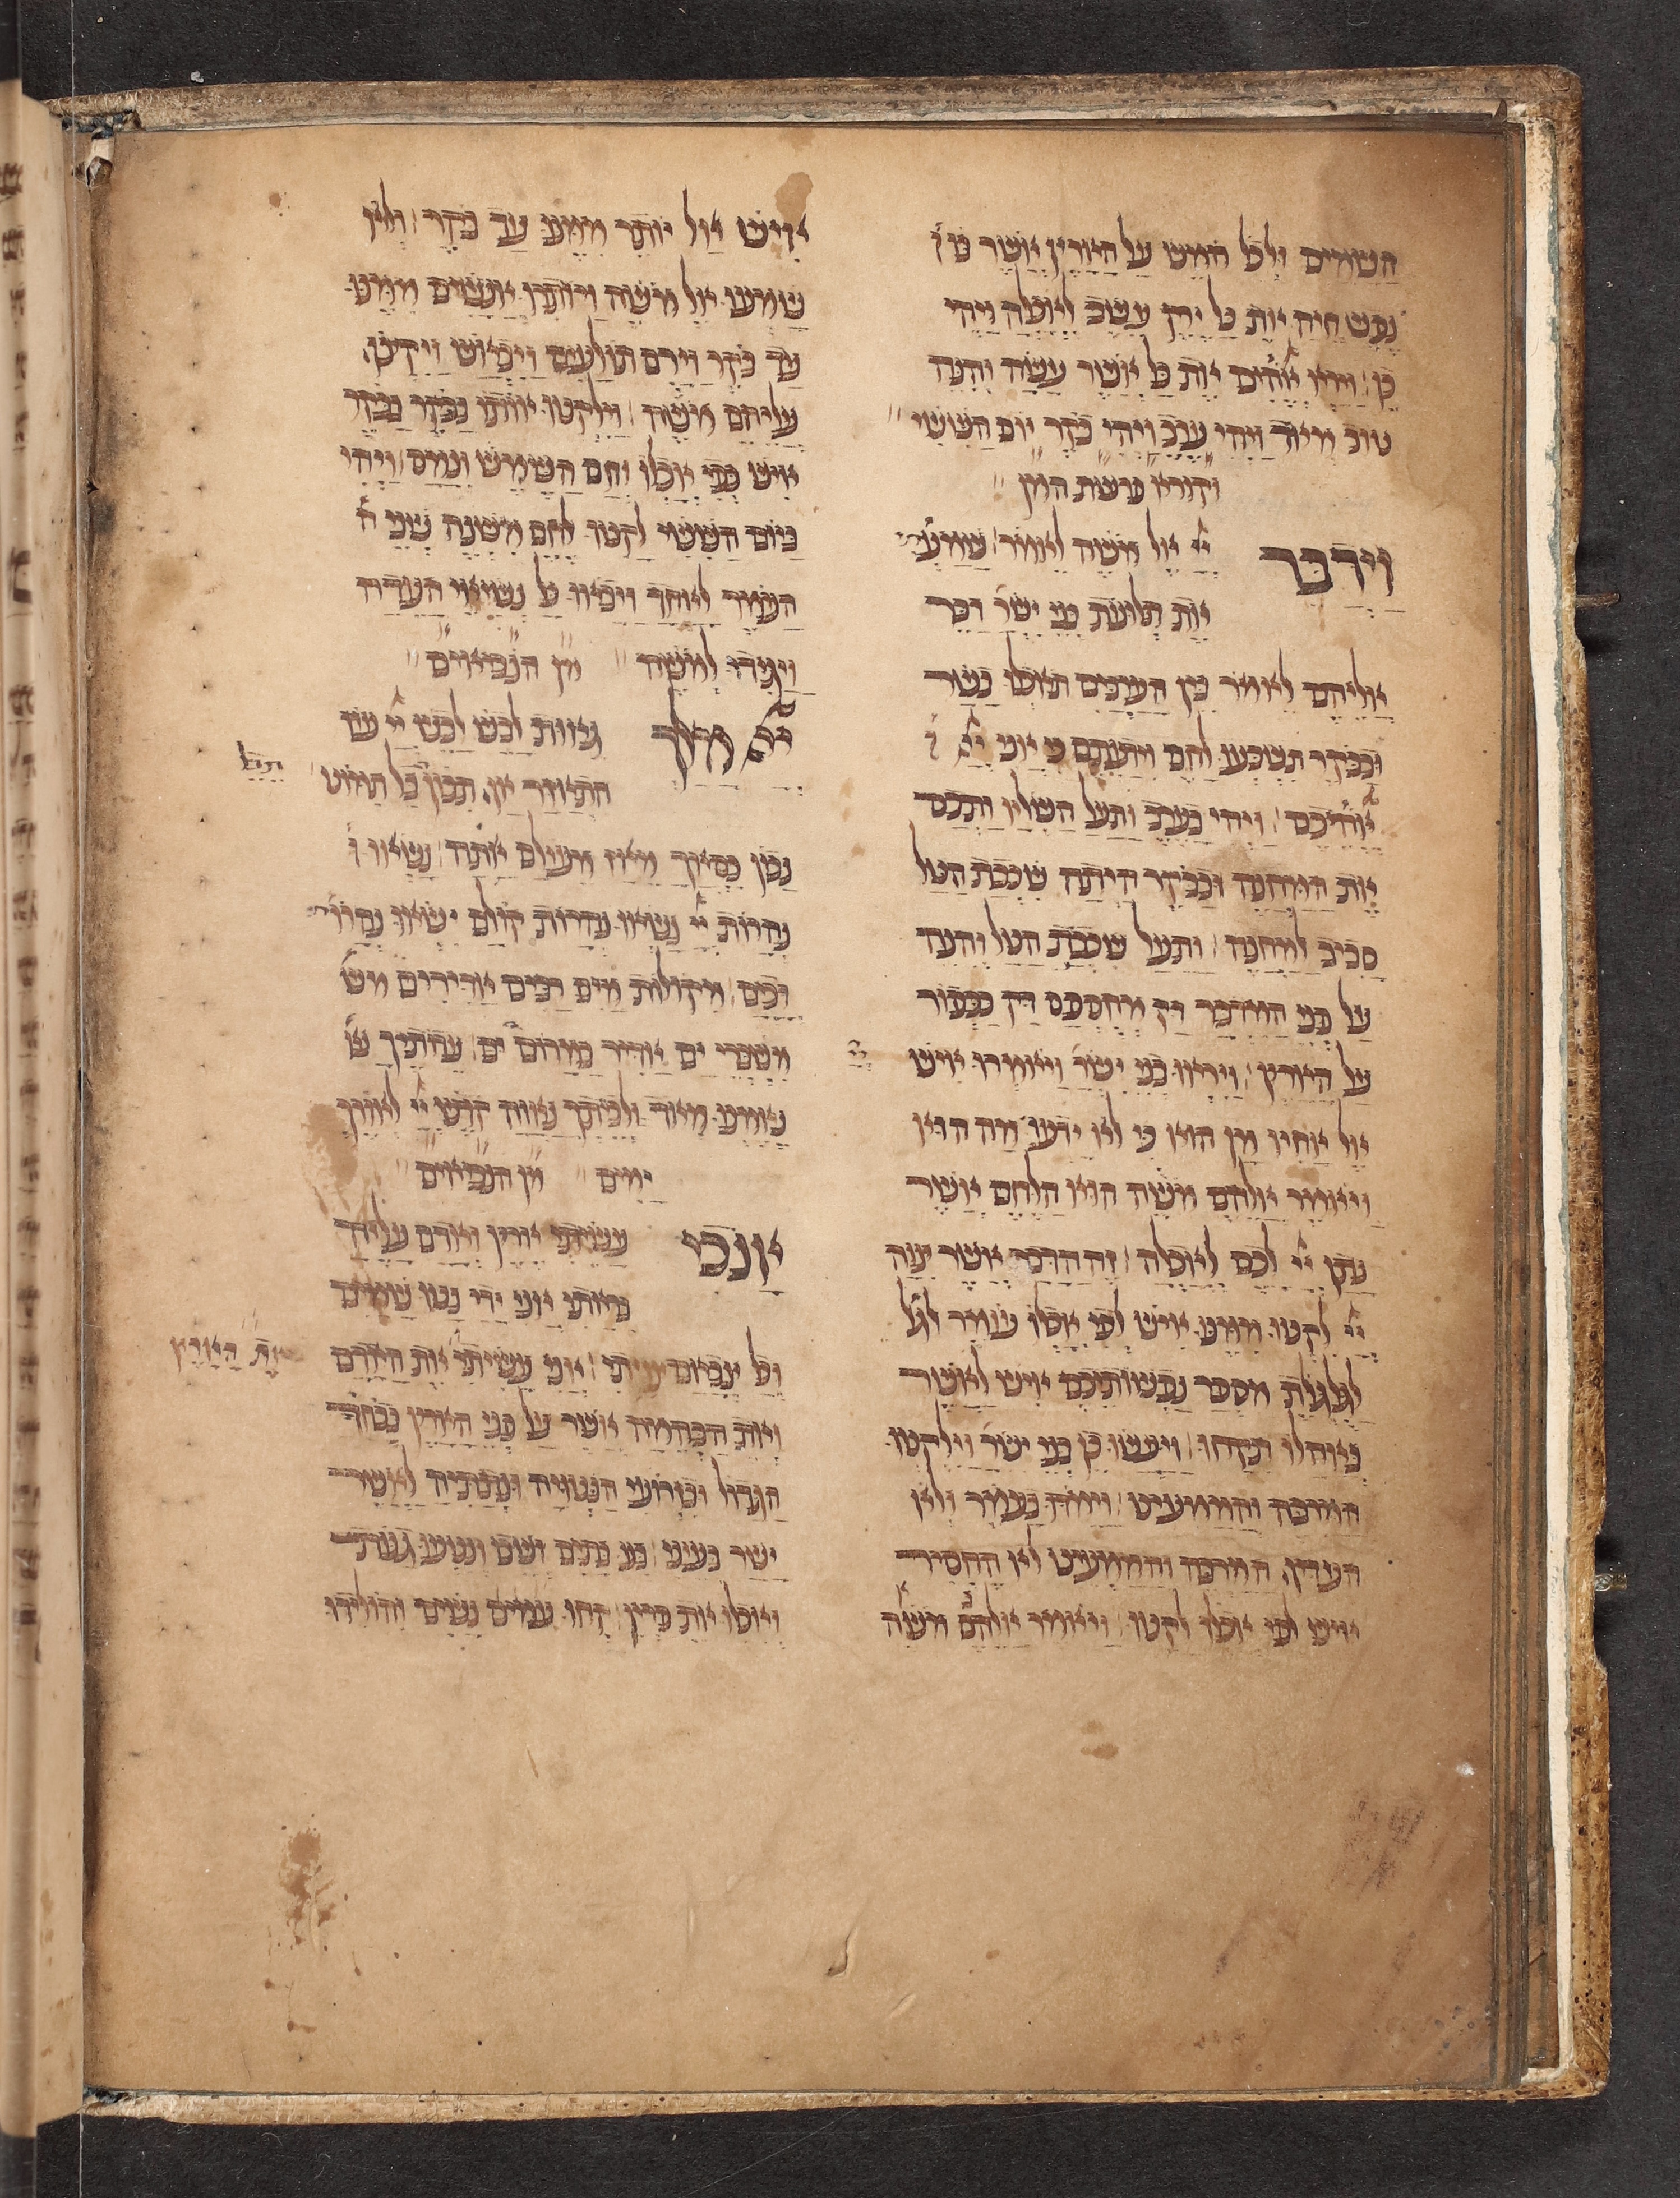 השמים ולכל רמש על הארץ אשר בו
נפש חיה את כל ירק עשב לאכלה ויהי
כן וירא את כל אשר עשה והנה
טוב מאד ויהי ערב ויהי בקר יום הששי
וקורא פרשת המן
וידבר יי אל משה לאמר שמעתי
את תלונת בני ישר דבר
אליהם לאמר בין הערבים תאכלו בשר
ובבקר תשבעו לחם וידעתם כי אני יי
ויהי בערב ותעל השליו ותכס
את המחנה ובבקר היתה שכבת הטל
סביב למחנה ותעל שכבת הטל והנה
על פני המדבר דק מחספס דק ככפור
על הארץ ויראו בני ישר ויאמרו איש
אל אחיו מן הוא כי לא ידעו מה הוא
ויאמר אלהם משה הוא הלחם אשר
נתן יי לכם לאכלה זה הדבר אשר צוה
יי לקטו ממנו איש לפי אכלו עומר לגל
לגלגלת מספר נפשותיכם איש לאשר
באהלו תקחו ויעשו כן בני ישר וילקטו
המרבה והממעיט וימדו בעמר ולא
העדיף המרבה והממעיט לא החסיר
איש לפי אכלו לקטו ויאמר אלהם משה
איש אל יותר ממנו עד בקר ולא
שמעו אל משה ויותרו אנשים ממנו
עד בקר וירם תולעים ויבאוש ויקצוף
עליהם משה וילקטו אותו בבקר בבקר
איש כפי אכלו וחם השמש ונמס ויהי
ביום הששי לקטו לחם משנה שני ה
העמר לאחד ויבאו כל נשיאי העדה
ויגידו למשה מן הנביאים
יי מלך גאות לבש לבש יי עז
התאזר אף תכון תבל בל תמוט
נכון כסאך מאז מעולם אתה נשאו נ
נהרות יי נשאו נהרות קולם ישאו נהרו
רבים מקולות מים רבים אדירים מש
משברי ים אדיר במרום יי עדותיך
נאמנו מאד לביתך נאוה קדש יי לאורך
ימים מן הנביאים
אנכי עשיתי ארץ ואדם עליה
בראתי אני ידי נטו שמים
וכל צבאם צויתי אני עשיתי את הארץ את האדם
ואת הבהמה אשר על פני הארץ בכחי
הגדול ובזרועי הנטויה ונתתיה לאשר
ישר בעיני בנו בתים ושבו ונטעו גנות
ואכלו את פרין קחו נשים והולידו